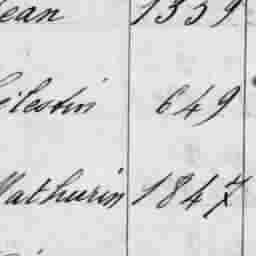 Jean 1339
Célestin 649
Mathurin 1847